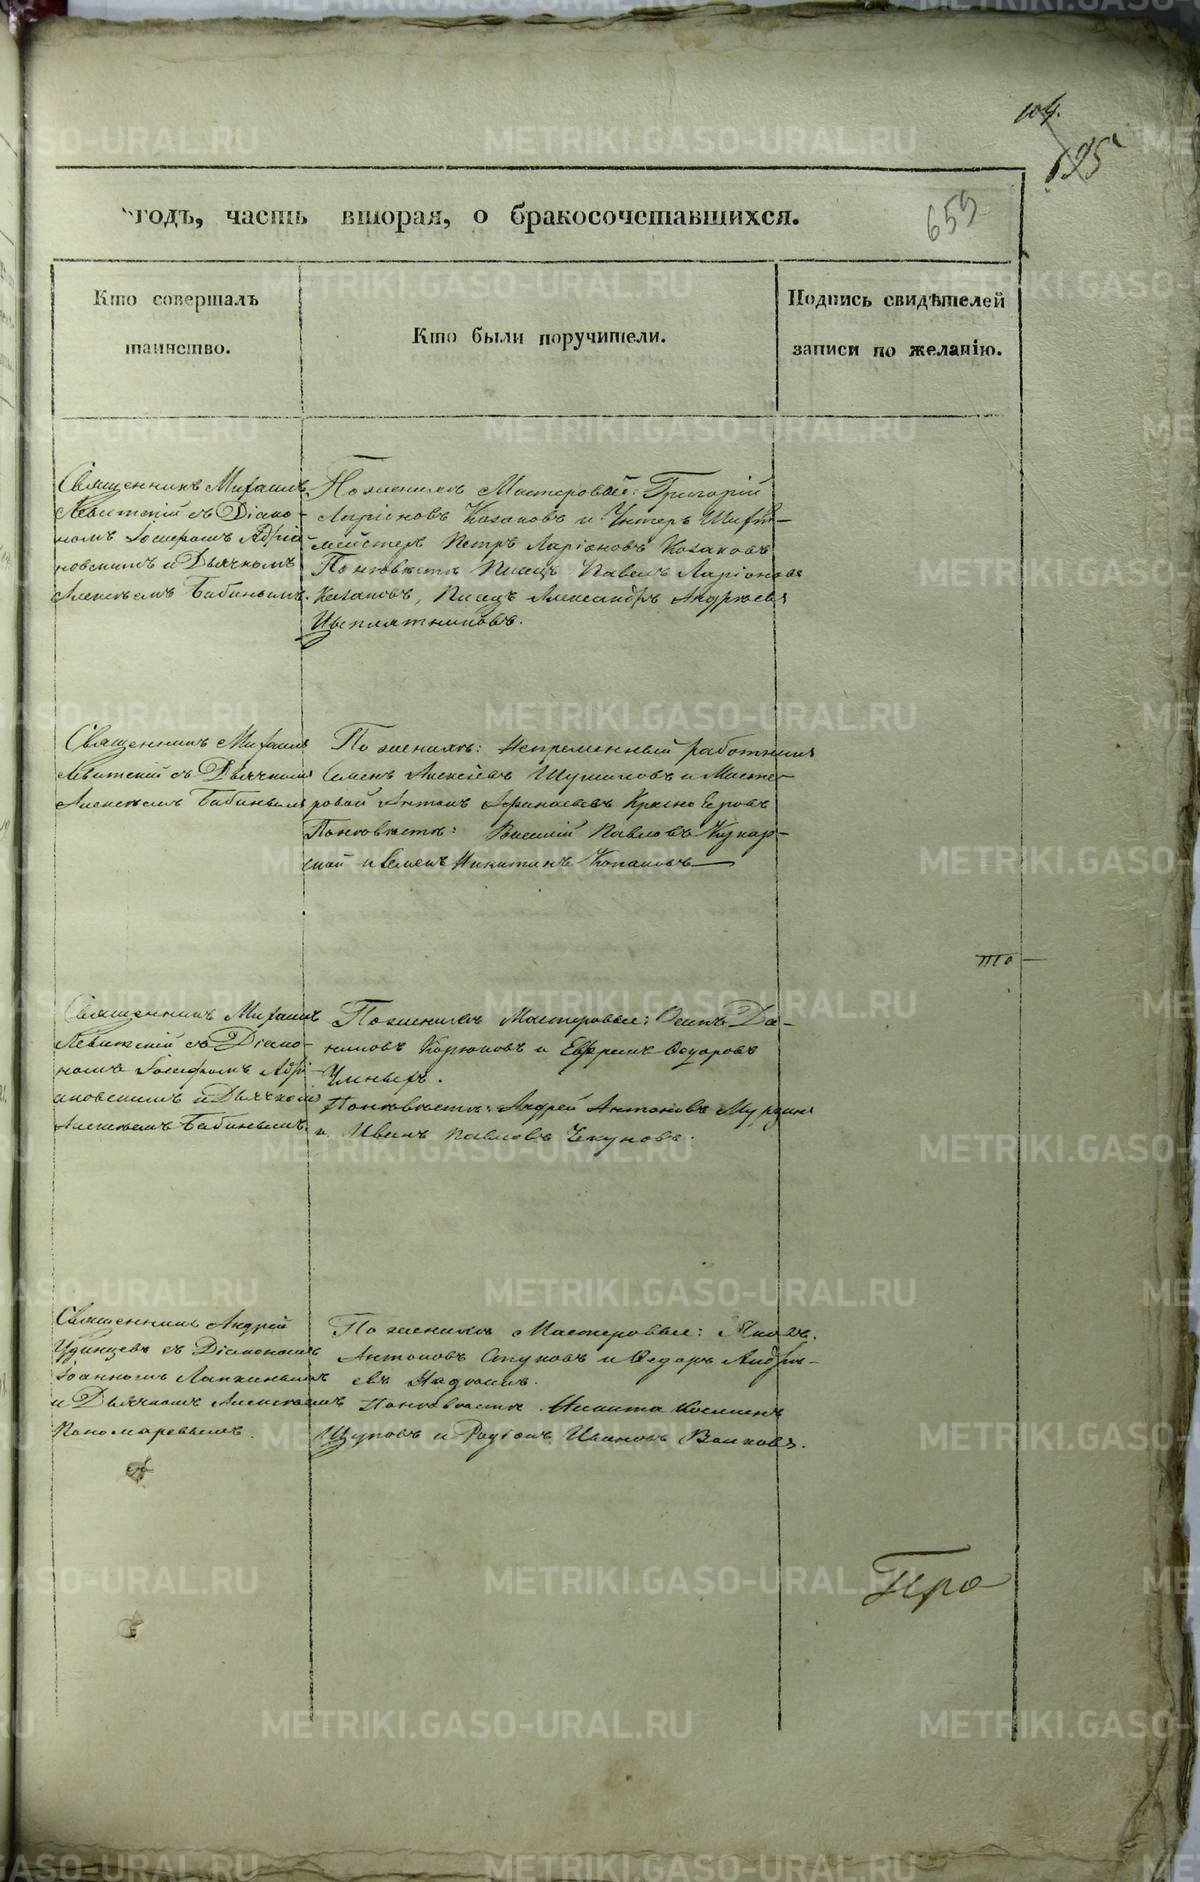 104.
695
годъ, часть вторая, о бракосочетавшихся.
659
Кто совершалъ
таинство.
Кто были поручители.
Подпись свидѣтелей
записи по желанію.
Священникъ Михаилъ
Левитскій съ Діако-
номъ Іосифомъ Адрі
новскимъ и Дьячкомъ
Алексѣемъ Бабинымъ.
По женихѣ Мастеровые: Григорій
Ларіоновъ Казаковъ и Унтеръ Шихт-
мейстеръ Петръ Ларіоновъ Казаковъ
По невѣстѣ Писецъ Павелъ Ларіоновъ
Казаковъ, Писецъ Александръ Андреевъ
Цыплятниковъ.
Священникъ Михаилъ
Левитскій съ Дьячкомъ
Алексѣемъ Бабинымъ
По женихѣ: Непременный работникъ
Семенъ Алексѣевъ Шушаковъ и Масте-
ровой Антонъ Афанасьевъ Красно
По невѣстѣ: Василій Павловъ Кукар-
ской и Семенъ Никитинъ
Священникъ Михаилъ
Левитскій съ Діако-
номъ Іосифомъ Адрі
ановскимъ и Дьячкомъ
Алексѣемъ Бабинымъ
По женихѣ Мастеровые: Осипъ Да-
ниловъ Корюковъ и Ефремъ Федоровъ
По невѣстѣ: Андрей Антоновъ Мурзинъ
и Иванъ Павловъ Чекуновъ.
Священникъ Андрей
Удинцевъ съ Діакономъ
Іоанномъ Лапинымъ
и Дьячкомъ Алексѣемъ
Пономаревымъ.
По женихѣ Мастеровые: Яковъ
Антоновъ и Федоръ Андре-
евъ
По невѣстѣ Никита Косминъ
Щуповъ и Родіонъ Ивановъ Волковъ.
Про
METRIKI.GASO-URAL.RU